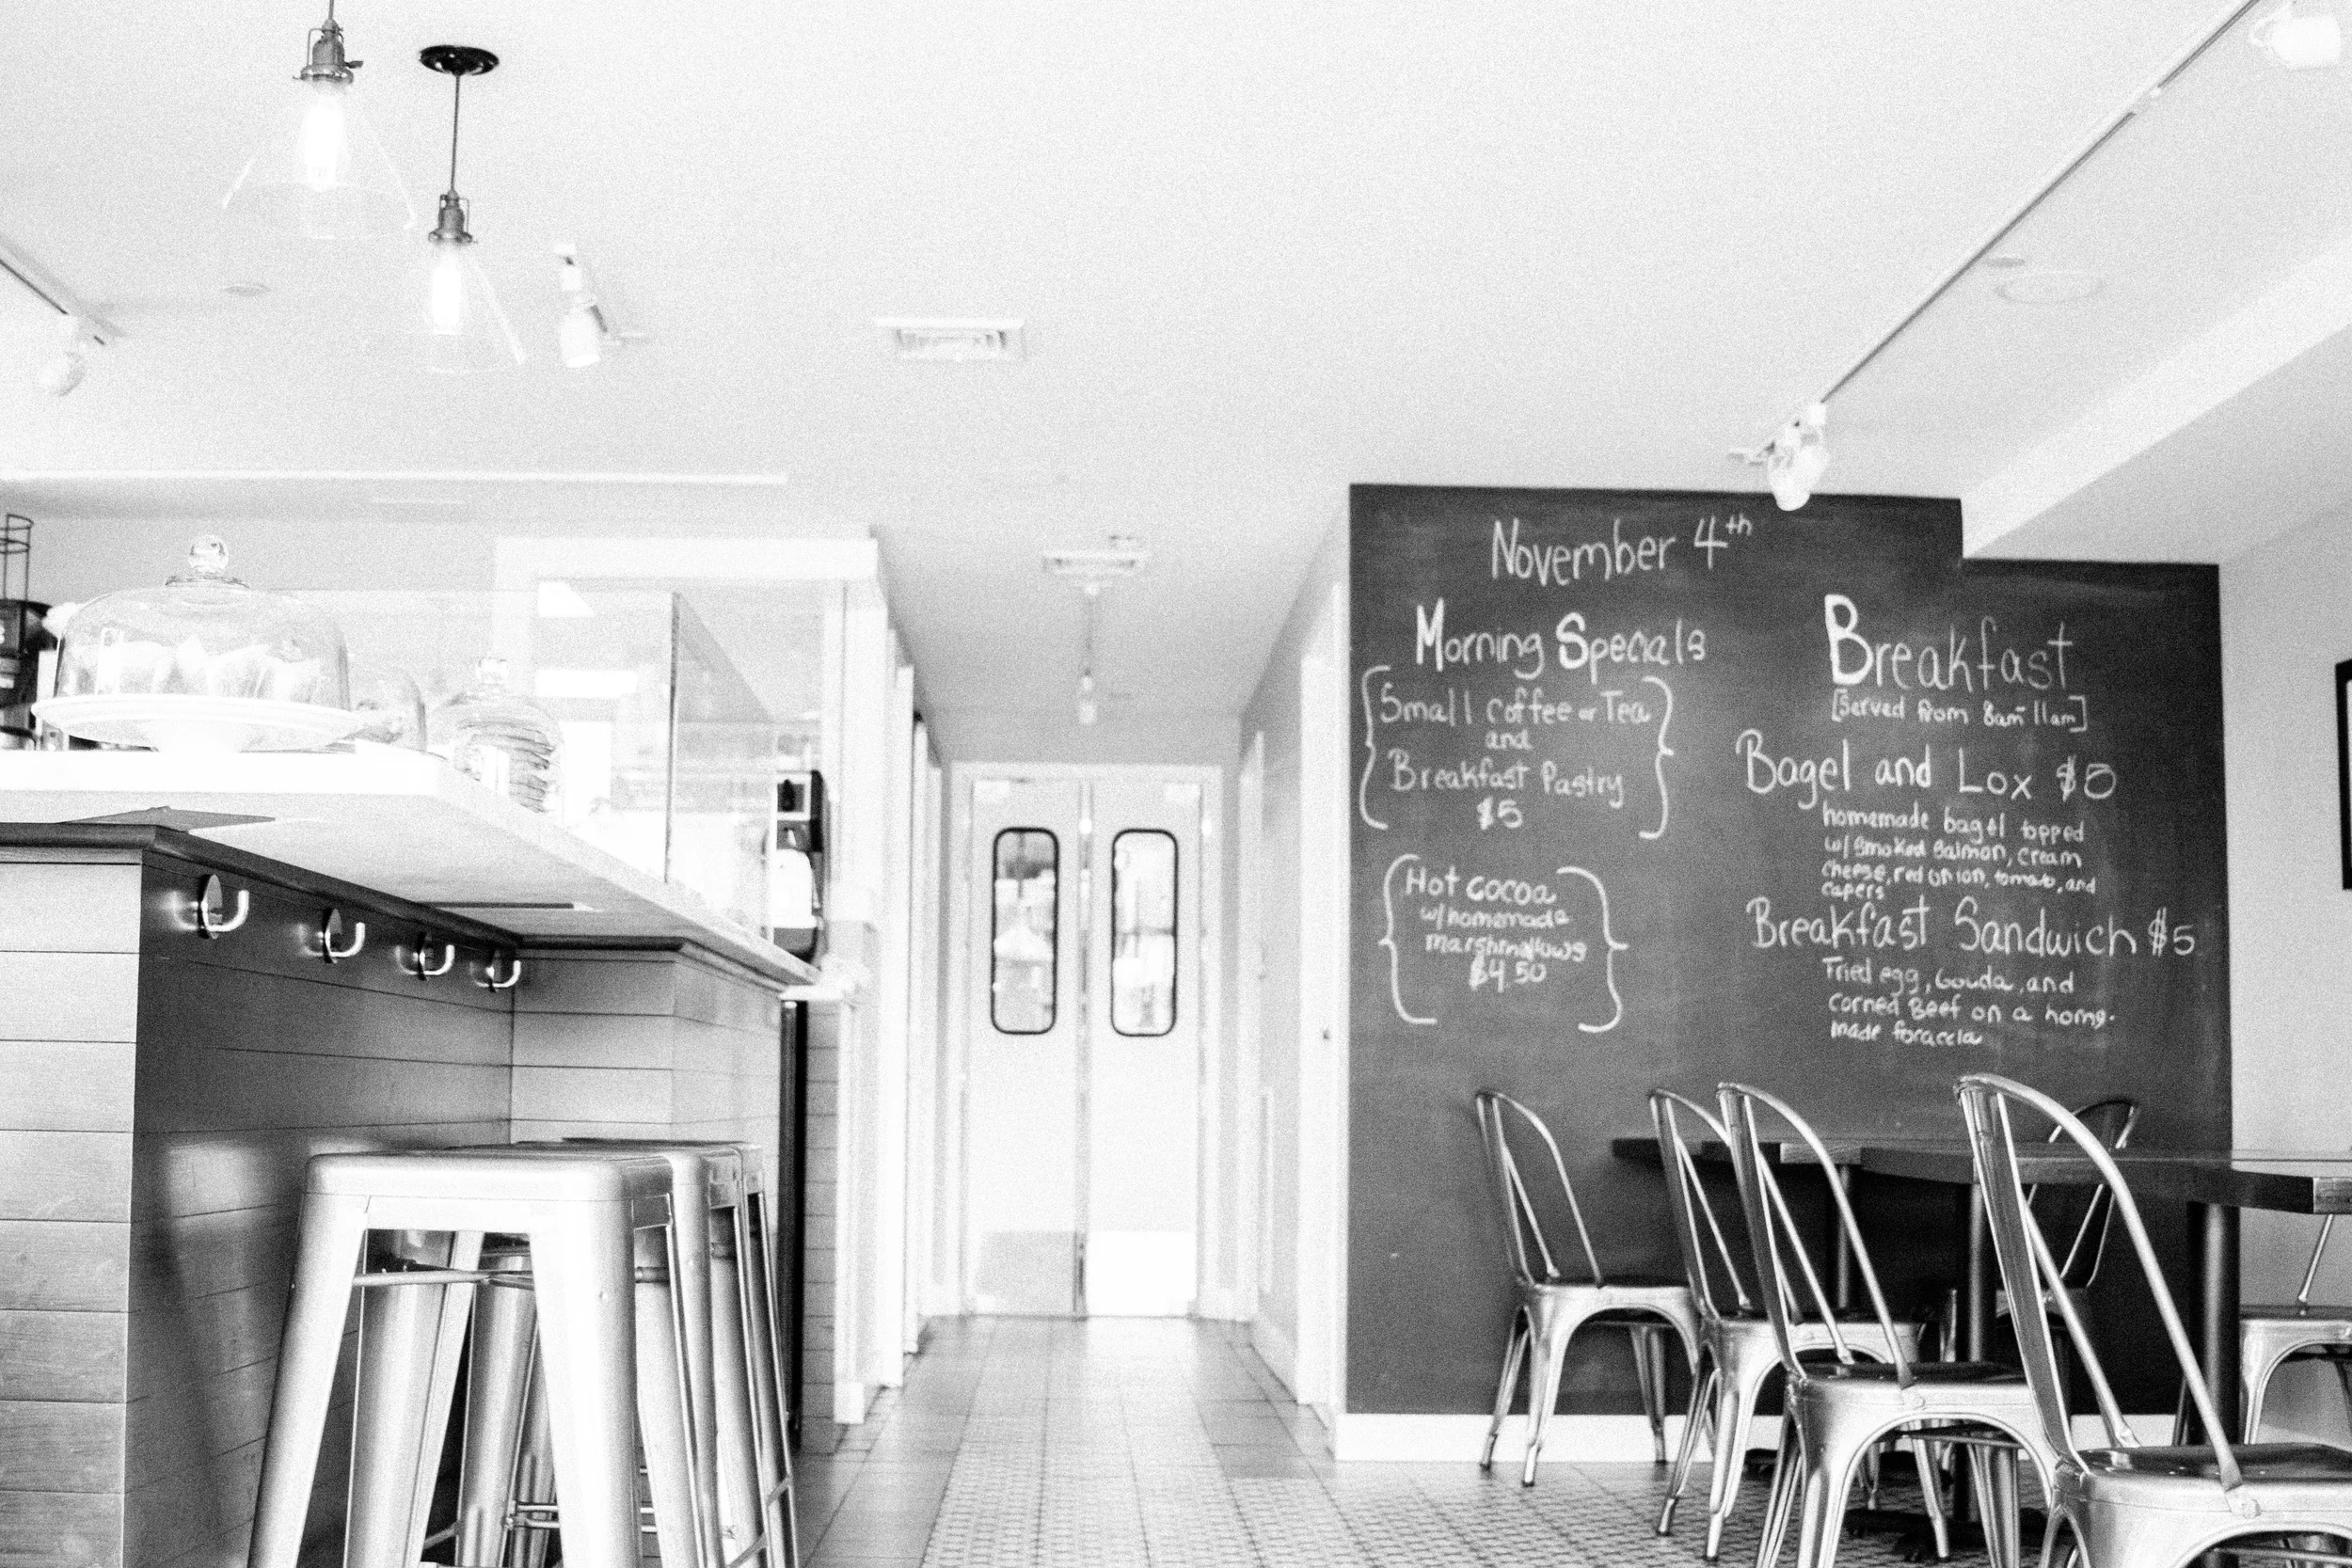 November 4th
Morning Specials
Small coffee or Tea
and
Breakfast Pastry
$5
Hot cocoa
w/homemade
marshmallows
$4.50
Breakfast
[Served from 8am-11am]
Bagel and Lox $8
homemade bagel topped
w/ smoked salmon, cream
cheese, red onion, tomato, and
capers
Breakfast Sandwich $5
Fried egg, Gouda, and
corned Beef on a home-
made foraccia